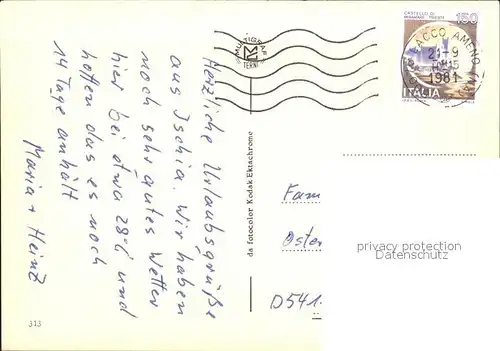 Herzliche Urlaubsgrüße
aus Ischia. Wir haben
noch sehr gutes Wetter
hier bei etwa 28°C und
hoffen das es noch
14 Tage anhält
Maria + Heinz
313
da fotocolor Kodak Ektachrome
MULTIGRAF
TERNI
CASTELLO DI
MIRAMARE TRIESTE
150
ITALIA
LACCO AMENO
21-9
1981
Fam
Oster
D541
privacy protection
Datenschutz